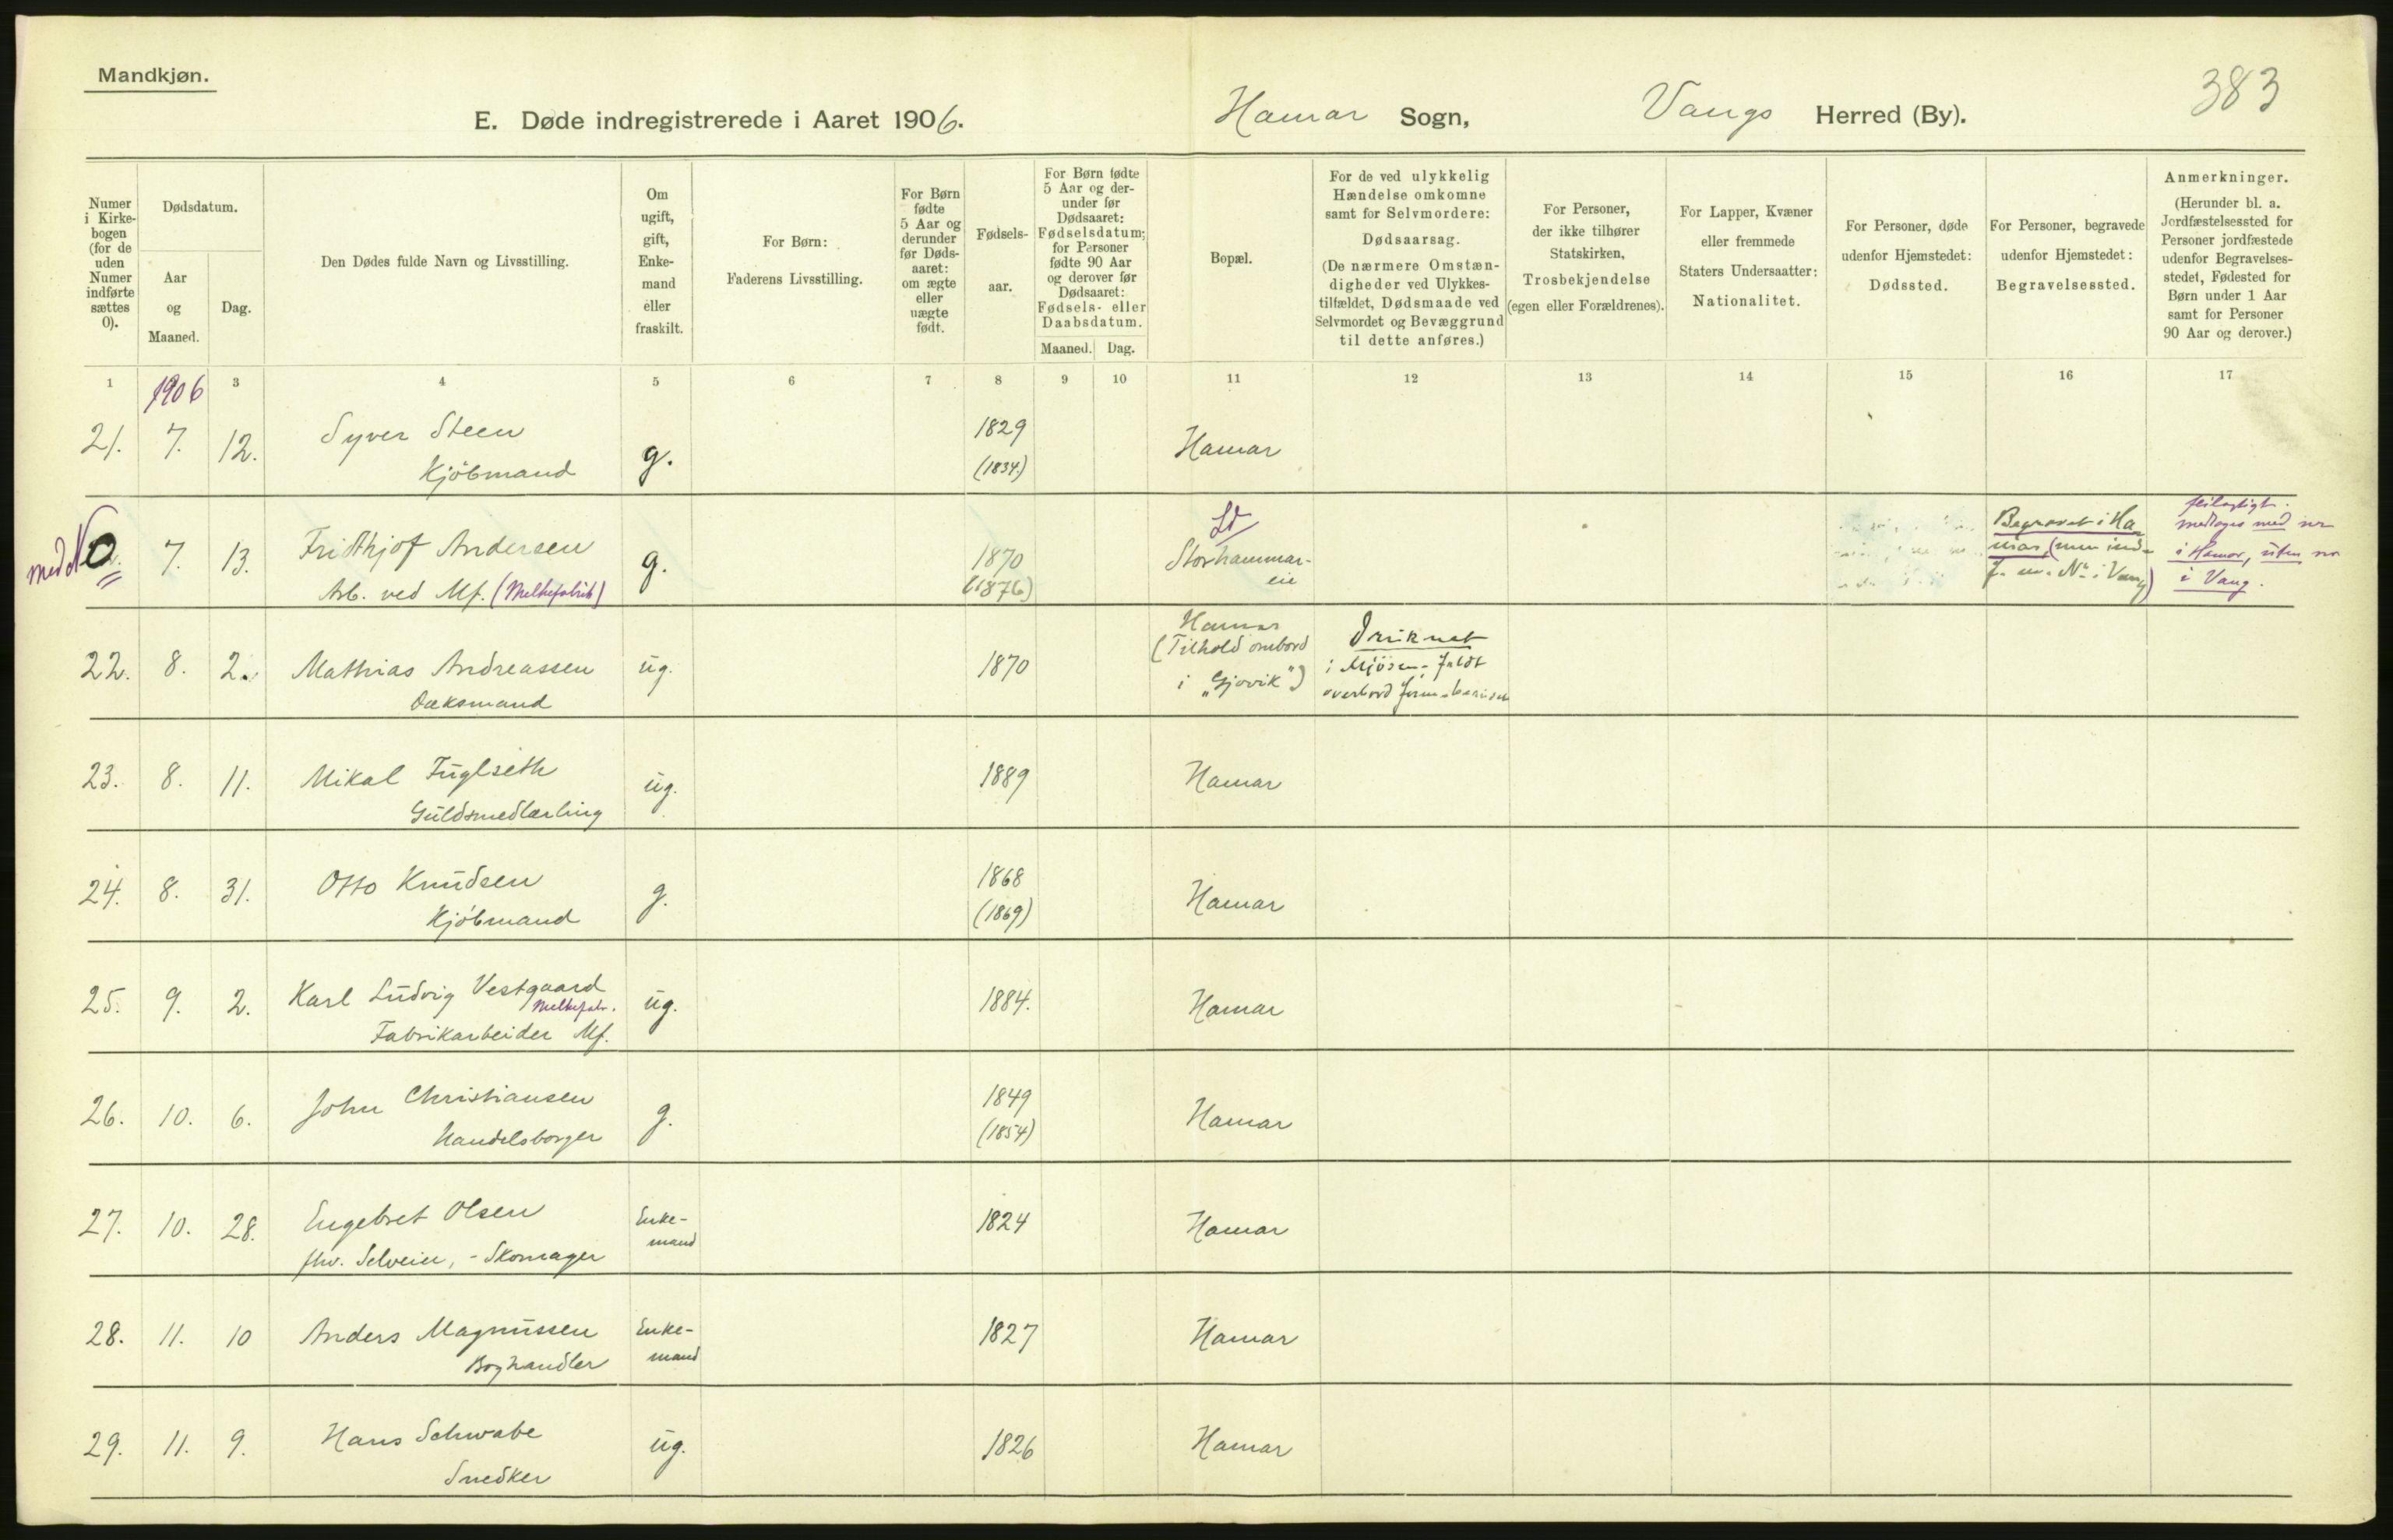 Mandkjøn.
383
E. Døde indregistrerede i Aaret 1906. Hamar Sogn, Vangs Herred (By).
Numer i Kirke-bogen (for de uden Numer indførte sættes 0).
Dødsdatum.
Aar og Maaned.
Dag.
Den Dødes fulde Navn og Livsstilling.
Om ugift, gift, Enke-mand eller fraskilt.
For Børn: Faderens Livsstilling.
For Børn fødte 5 Aar og derunder før Døds-aaret: om ægte eller uægte født.
Fødsels-aar.
For Børn fødte 5 Aar og der-under før Dødsaaret: Fødselsdatum; for Personer fødte 90 Aar og derover før Dødsaaret: Fødsels- eller Daabsdatum.
Maaned. Dag.
Bopæl.
For de ved ulykkelig Hændelse omkomne samt for Selvmordere: Dødsaarsag. (De nærmere Omstæn-digheder ved Ulykkes-tilfældet, Dødsmaade ved Selvmordet og Bevæggrund til dette anføres.)
For Personer, der ikke tilhører Statskirken, Trosbekjendelse (egen eller Forældrenes).
For Lapper, Kvæner eller fremmede Staters Undersaatter: Nationalitet.
For Personer, døde udenfor Hjemstedet: Dødssted.
For Personer, begravede udenfor Hjemstedet: Begravelsessted.
Anmerkninger. (Herunder bl. a. Jordfæstelsessted for Personer jordfæstede udenfor Begravelses-stedet, Fødested for Børn under 1 Aar samt for Personer 90 Aar og derover.)
1 3 4 5 6 7 8 9 10 11 12 13 14 15 16 17
1906
21. 7. 12. Syver Steen g. 1829 Hamar
Kjöbmand (1834.)
0 7. 13. Fridthjof Andersen g. 1870 Ld Storhammar-
Arb. ved Mf. (Melkefabrik) (1876) eie
Begravet i Ha
mar, (men ind-
i Vang)
feilagtigt.
medtages med nr
i Hamar, uten nr
i Vang.
22. 8. 2. Mathias Andreassen ug. 1870 Hamar
Dæksmand (Tilhold ombord
i "Gjøvik")
Druknet
i Mjösen - faldt
overbord
23. 8. 11. Mikal Fuglseth ug. 1889 Hamar
Guldsmedlærling
24. 8. 31. Otto Knudsen g. 1868 Hamar
Kjöbmand (1869)
25. 9. 2. Karl Ludvig Vestgaard ug. 1884. Hamar
Melkefabr.
Fabrikarbeider Mf.
26. 10. 6. John Christiansen g. 1849 Hamar
Handelsborger (1854)
27. 10. 28. Engebret Olsen Enke-mand 1824 Hamar
fhv. Selveier, - Skomager
28. 11. 10 Anders Magnussen Enke-mand 1827 Hamar
Boghandler
29. 11. 9. Hans Schwabe ug. 1826 Hamar
Snedker